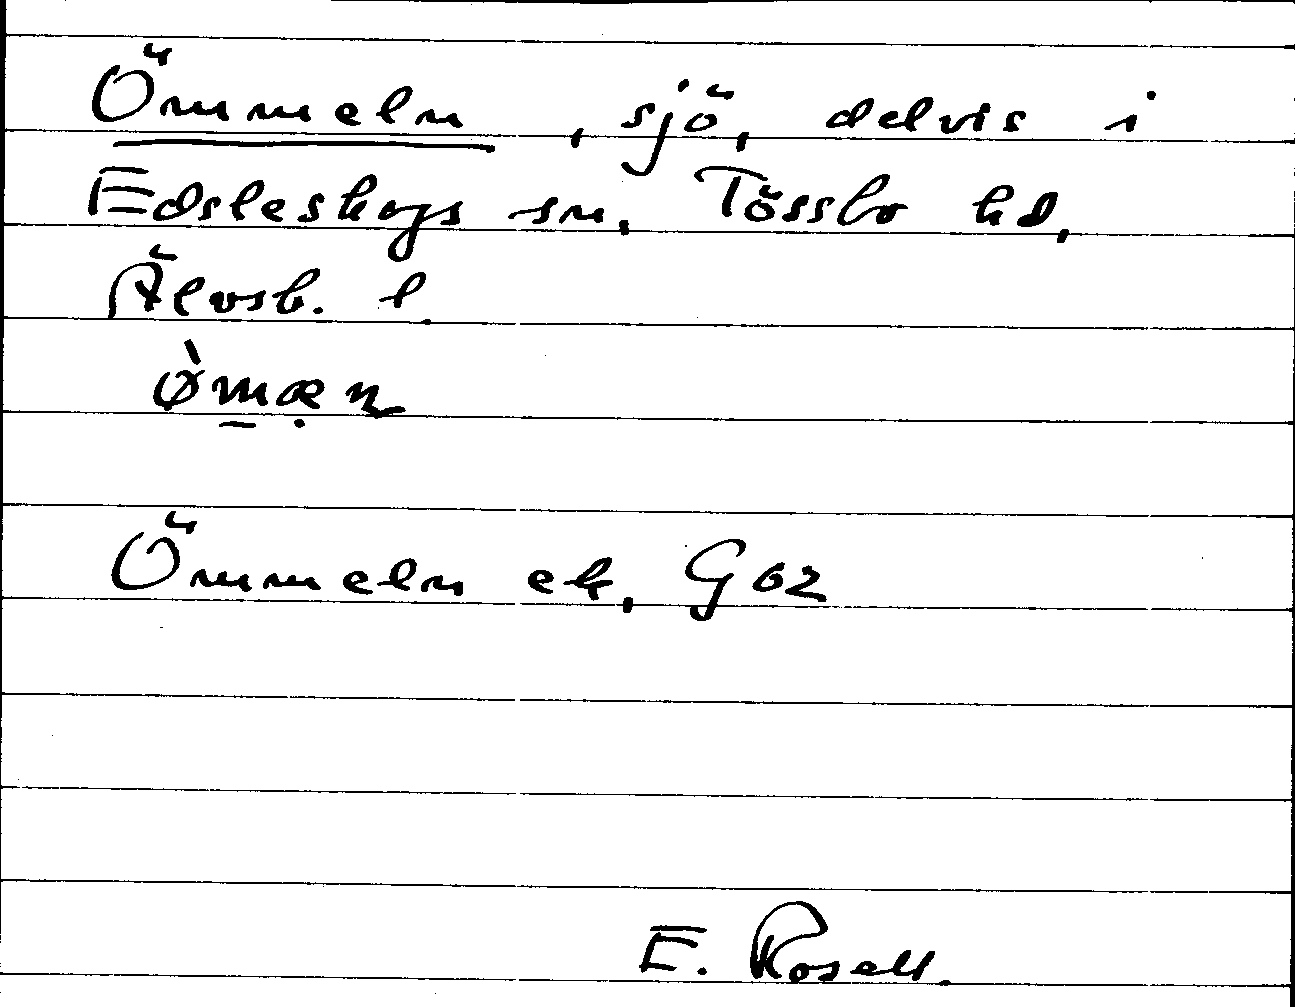 Ömmeln, sjö, delvis i
Edsleskogs sn, Tössbo hd,
Älvsb. l.
Ömmeln ek, G02
E. Rosell.